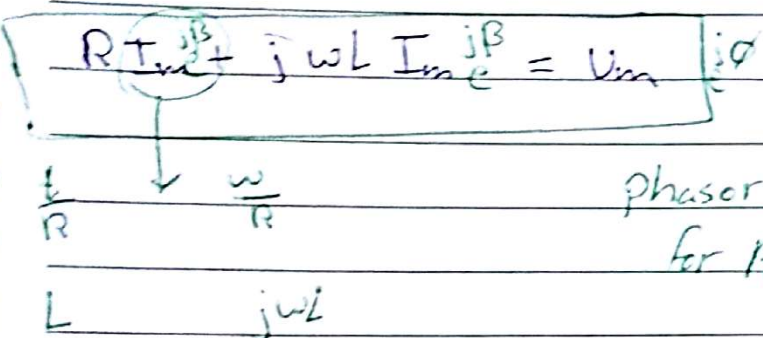 R I_m e^{jβ} + jωL I_m e^{jβ} = V_m e^{jφ}
t ω phasor
R R for
L jωL